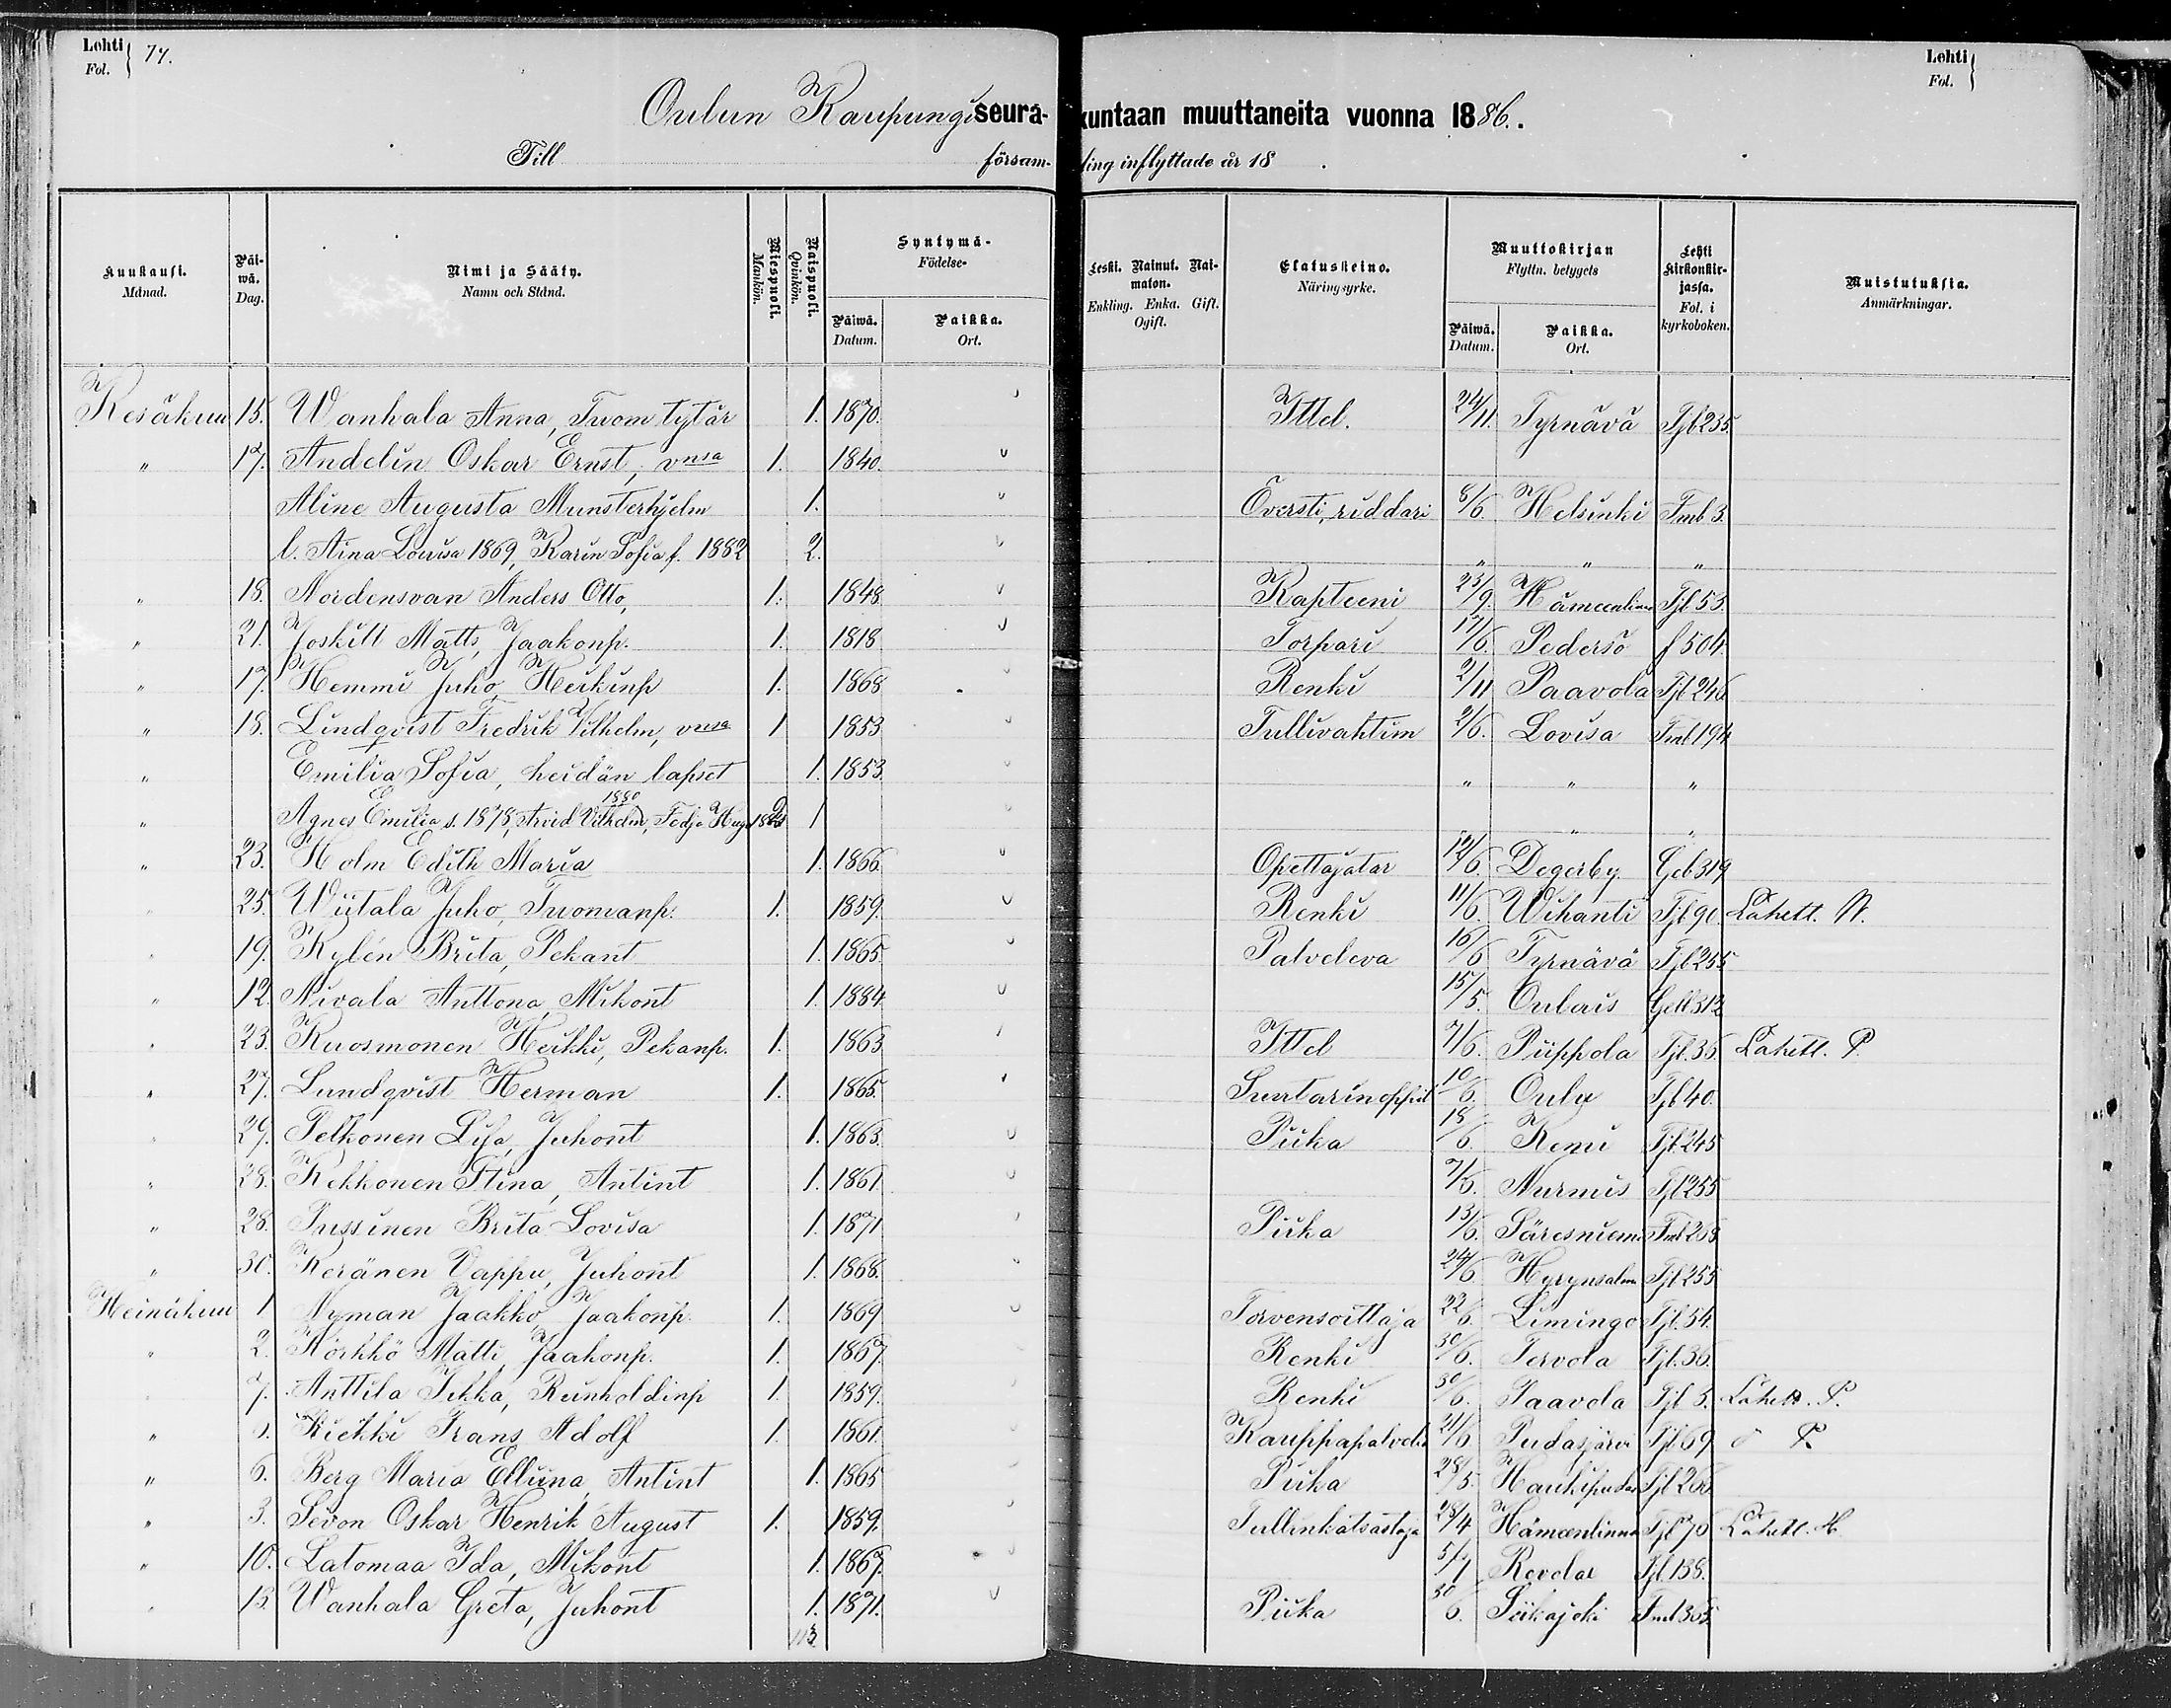 Lehti Fol. 74.
Lehti Fol.
Oulun Kaupungi seurakuntaan muuttaneita vuonna 1886.
Till församling inflyttade år 18 .
Kuukausi. Månad. Päiwä. Dag. Nimi ja Sääty. Namn och Stånd. Miespuoli. Mankön. Naispuoli. Qvinkön. Syntymä- Födelse- Päiwä. Datum. Paikka. Ort. Leski. Nainut. Naimaton. Enkling. Enka. Gift. Ogift. Elatuskeino. Näringsyrke. Muuttokirjan Flyttn. betygets Päiwä. Datum. Paikka. Ort. Lehti kirkonkirjassa. Fol. i kyrkoboken. Muistutuksia. Anmärkningar.
Kesäkuu 15. Wanhala Anna, Tuom. tytär 1. 1870. Ittel. 24/11. Tyrnävä Tjb 235.
" 17. Andelin Oskar Ernst, vnsa 1. 1840.
Aline Augusta Munsterhjelm 1. Översti, riddari 8/6. Helsinki Tmb 3.
l. Aina Lovisa 1869, Karin Sofia f. 1882 2. " " "
" 18. Nordensvan Anders Otto, 1. 1848. Kapteeni 23/9. Hämeenlinna Tjl 53.
" 21. Joskitt Matts, Jaakonp. 1. 1818 Torpari 17/6. Pedersö f 504.
" 17. Hemmi Juho, Heikinp 1. 1868 Renki 2/11 Paavola Tjb 246
" 18. Lindqvist Fredrik Vilhelm, vnsa 1 1853 Tullivahtim 2/6. Lovisa Tml 194
" Emilia Sofia, heidän lapset 1. 1853. " " "
" Agnes Emilia s. 1878, Arvid Vilhelm 1880, Fedja Hugo 2 1 " "
" 23. Holm Edith Maria 1. 1866. Opettajatar 12/6. Degerby Geb 319
25. Wiitala Juho, Tuomanp. 1. 1859. Renki 11/6. Wihanti Tjb 90. Lähett. W.
19. Kylén Brita, Pekant 1. 1865. Palveleva 16/6 Tyrnävä Tjl 255
" 12. Nivala Anttona, Mikont 1. 1884. 15/5. Oulais Gell 312
23. Kuosmonen Heikki, Pekanp. 1. 1863 Ittel 7/6. Piippola Tjl. 36. Lähett. P.
" 27. Lundqvist Herman 1. 1865. Suutarinoppil 10/6. Oulu Tjb 40.
29. Pelkonen Lisa, Juhont 1. 1863. Piika 18/6. Kemi Tjl. 245
" 28. Kekkonen Stina, Antint 1. 1861 7/6. Nurmis Tjl 255
" 28. Jussinen Brita Lovisa 1. 1871 Piika 13/6. Säresniemi Tml 268
" 30. Keränen Vappu, Juhont 1. 1868. 24/6 Hyrynsalmi Tjl 255
Heinäkuu 1 Nyman Jaakko, Jaakonp. 1. 1869 Torvensoittaja 22/6. Limingo Tjl. 54.
" 2. Körkkö Matti, Jaakonp. 1. 1867. Renki 30/6. Tervola Tjl. 36.
7. Anttila Jukka, Reinholdinp 1. 1859. Renki 30/6. Paavola Tjl 5. Lähett. P.
" Kiekki Frans Adolf 1. 1861. Kauppapalvelia 21/6. Pudasjärvi Tjl 69 P.
" 6. Berg Maria Elliina, Antint 1. 1865 Piika 28/5. Haukipudas Tjl 266
" 3. Sevon Oskar Henrik August 1. 1859. Tullinkatsastaja 28/4 Hämeenlinna Tjl 70 Lähett. H.
" 10. Latomaa Ida, Mikont 1. 1867. 5/7 Revolax Tjl. 138.
" 13. Wanhala Greta, Juhont 1. 1871. Piika 30/6. Siikajoki Tml 365
113.